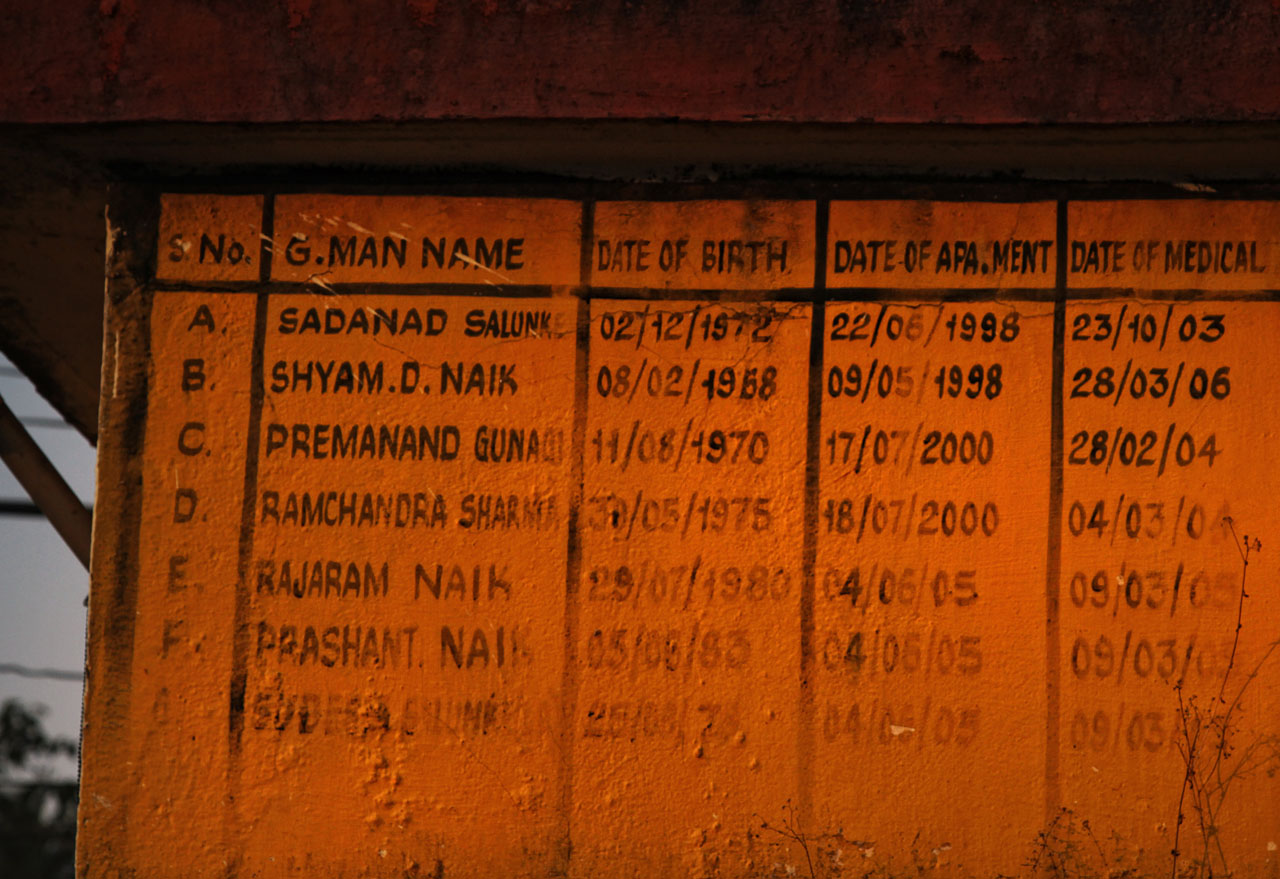 S No. G.MAN NAME DATE OF BIRTH DATE OF APA.MENT DATE OF MEDICAL
A. SADANAD SALUNKE 02/12/1972 22/06/1998 23/10/03
B. SHYAM.D. NAIK 08/02/1968 09/05/1998 28/03/06
C. PREMANAND 11/08/1970 17/07/2000 28/02/04
D. RAMCHANDRA SHARMA 30/05/1975 18/07/2000 04/03/04
E. RAJARAM NAIK 29/07/1980 04/06/05 09/03/05
F. PRASHANT. NAIK 04/06/05
04/06/05